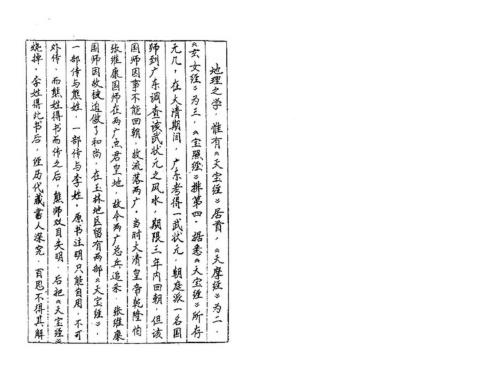 地理之学，惟有《天宝经》居首，《天摩经》为二，
《玄女经》为三，《宝照经》排第四，据悉《天宝经》所存
无几，在大清期间，广东考得一武状元，朝庭派一名国
师到广东调查该武状元之风水，期限三年内回朝，但该
国师因事不能回朝，故流落两广，当时大清皇帝乾隆怕
张维康国师在两广点君皇地，故令两广总兵追杀，张维康
国师因收被追做了和尚，在玉林地区留有两部《天宝经》，
一部传与熊姓，一部传与李姓，原书注明只能自用，不可
外传，而熊姓得书而传之后，熊师双目失明，后把《天宝经》
烧掉，李姓得此书后，经历代藏书人深究，百思不得其解